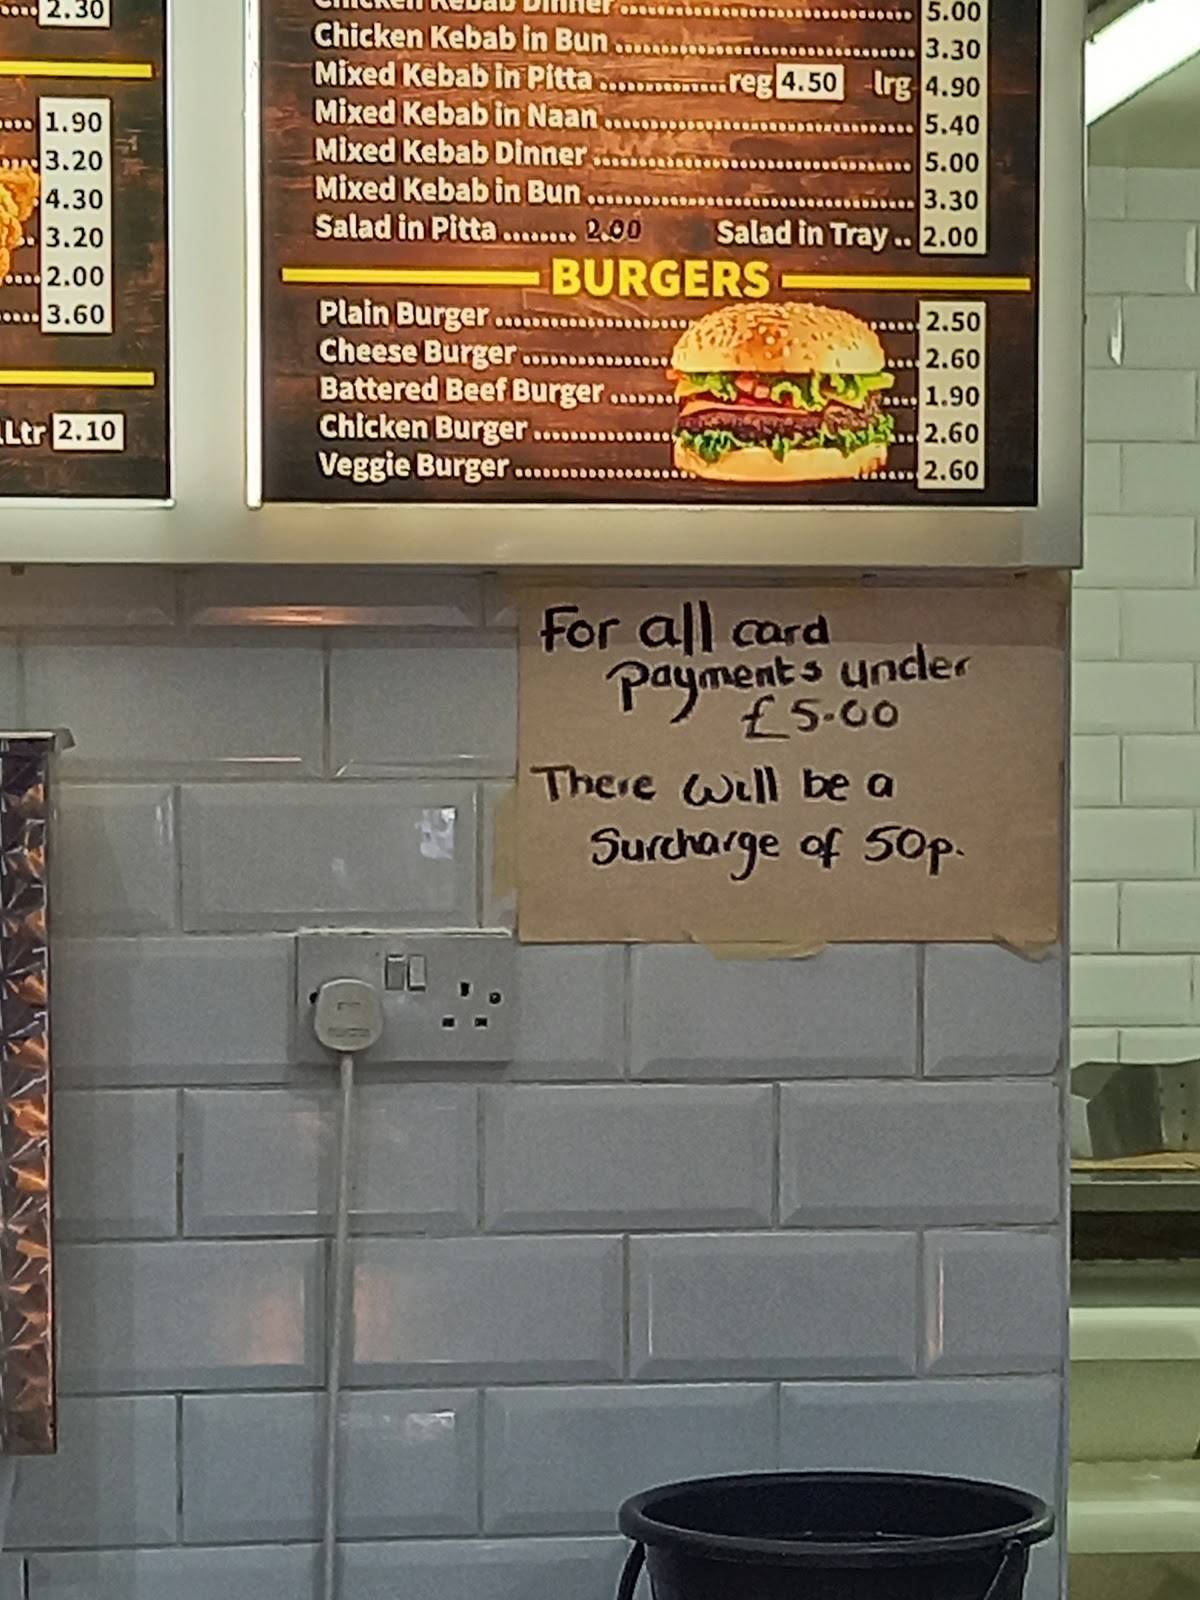 2.30
1.90
3.20
4.30
3.20
2.00
3.60
Ltr 2.10
Chicken Kebab Dinner 5.00
Chicken Kebab in Bun 3.30
Mixed Kebab in Pitta reg 4.50 lrg 4.90
Mixed Kebab in Naan 5.40
Mixed Kebab Dinner 5.00
Mixed Kebab in Bun 3.30
Salad in Pitta 2.00 Salad in Tray 2.00
BURGERS
Plain Burger 2.50
Cheese Burger 2.60
Battered Beef Burger 1.90
Chicken Burger 2.60
Veggie Burger 2.60
For all card
Payments under
£5.00
There will be a
Surcharge of 50p.